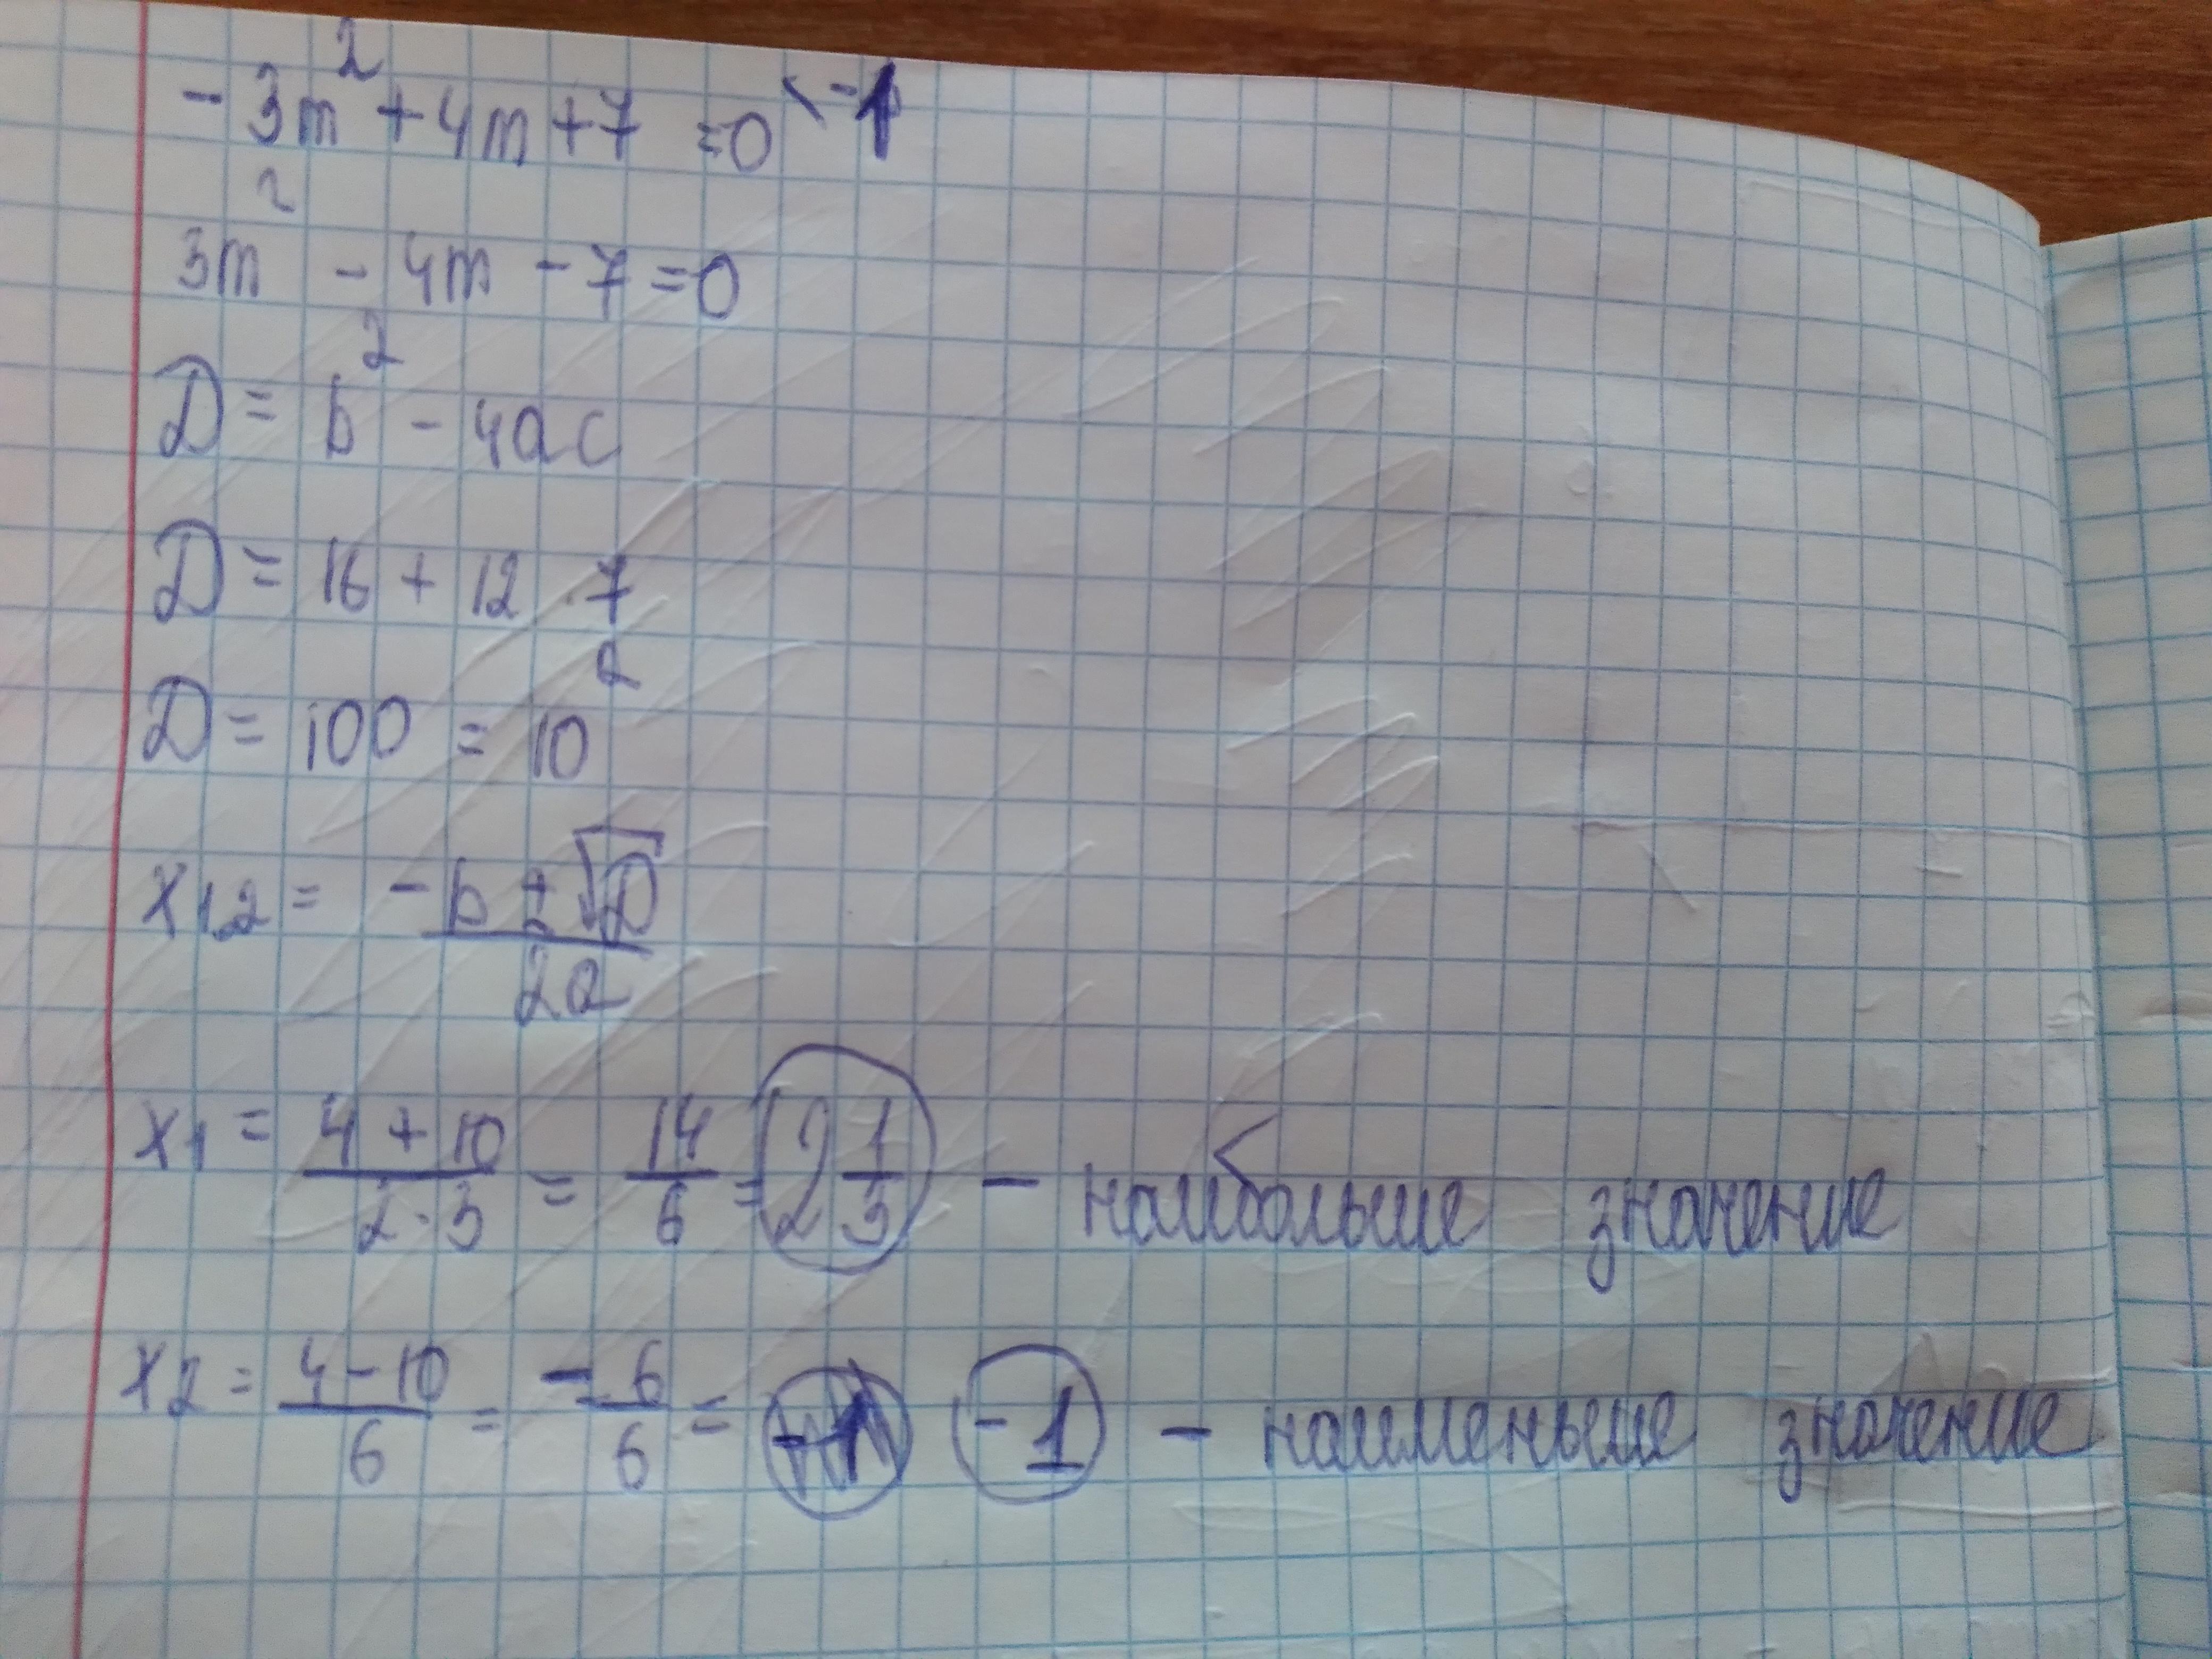 -3m² + 4m + 7 = 0 \ -1
3m² - 4m - 7 = 0
D = b² - 4ac
D = 16 + 12 · 7
D = 100 = 10²
x1,2 = (-b ± √D)/2a
x1 = (4 + 10)/(2 · 3) = 14/6 = 2 1/3 - наибольше значение
x2 = (4 - 10)/6 = -6/6 = -1 - наименьше значение